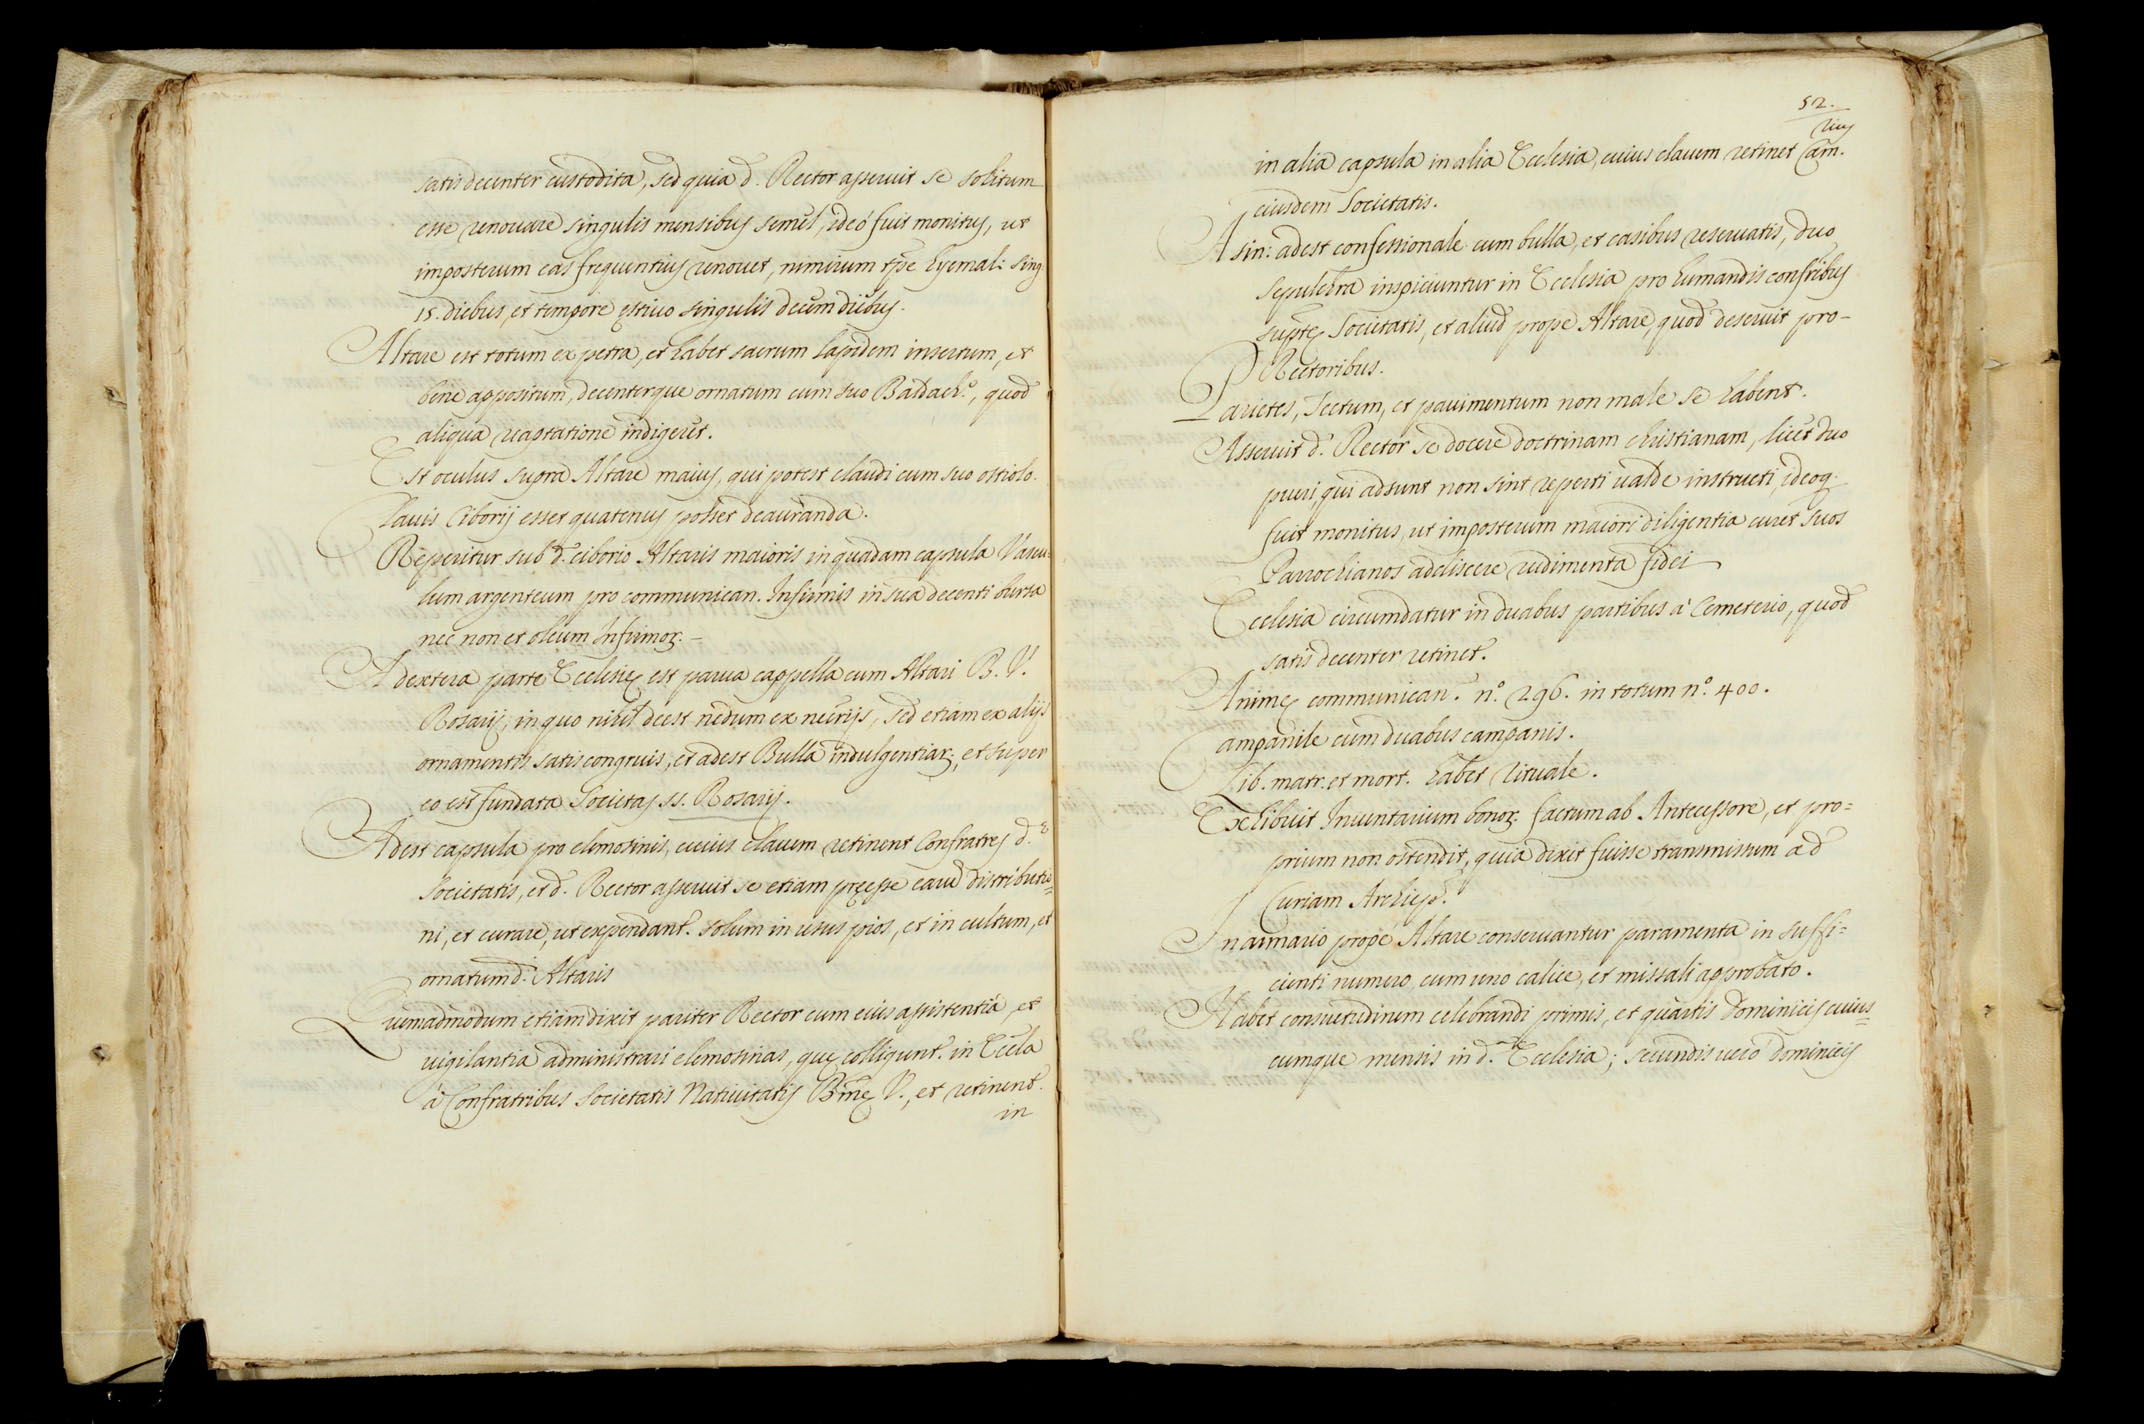 satis decenter custodita, sed quia d. Rector asseruit se solitum
esse renouare singulis mensibus semel, ideo fuit monitus, ut
imposterum eas frequentius renouet, nimirum tpe hyemali sing.
15. diebus, et tempore estiuo singulis decem diebus.
Altare est totum ex petra, et habet sacrum lapidem insertum, et
bene appositum, decenterque ornatum cum suo Baldach.º, quod
aliqua reaptatione indigeret.
Est oculus supra Altare maius, qui potest claudi cum suo ostiolo.
Clauis Ciborij esset quatenus posset deauranda.
Reperitur sub d. ciborio Altaris maioris in quadam capsula Vascu-
lum argenteum pro communican. Infirmis in sua decenti bursa
nec non et oleum Infirmoꝝ. -
A dextera parte Ecclesię est parua cappella cum Altari B. V.
Rosarij, in quo nihil deest nedum ex necrijs, sed etiam ex alijs
ornamentis satis congruis, et adest Bulla indulgentiaꝝ, et super
eo est fundata Societas ss. Rosarij.
Adest capsula pro elemosinis, cuius clauem retinent Confratres d.ę
Societatis, et d. Rector asseruit se etiam pręesse eaꝝ distributio=
ni, et curare, ut expendant. solum in usus pios, et in cultum, et
ornatum d.i Altaris
Quemadmodum etiam dixit pariter Rector cum eius assistentia, et
uigilantia administrari elemosinas, quę colligunt. in Eccla
à Confratribus Societatis Natiuitatis Bmę V., et retinent.
in
52.
in alia capsula in alia Ecclesia, cuius clauem retinet Cam.rius
eiusdem Societatis.
A sin: adest confessionale cum bulla, et casibus reseruatis, duo
sepulchra inspiciuntur in Ecclesia pro humandis confribus
suptę Societatis, et aliud prope Altare, quod deseruit pro-
Rectoribus.
Parietes, Tectum, et pauimentum non male se habent.
Asseruit d. Rector se docere doctrinam christianam, licet duo
pueri, qui adsunt non sint reperti ualde instructi, ideoq.
fuit monitus, ut imposterum maiori diligentia curet suos
Parrochianos addiscere rudimenta fidei
Ecclesia circumdatur in duabus partibus à Cemeterio, quod
satis decenter retinet.
Animę communican. nº. 296. in totum nº. 400.
Campanile cum duabus campanis.
Lib. matr. et mort. habet Rituale.
Exhibuit Inuentarium bonoꝝ factum ab Antecessore, et pro=
prium non ostendit, quia dixit fuisse transmissum ad
Curiam Archiep.
In armario prope Altare conseruantur paramenta in suffi=
cienti numero cum uno calice, et missali approbato.
Habet consuetudinem celebrandi primis, et quartis Dominicis cuius=
cumque mensis in d. Ecclesia; secundis uero dominicis